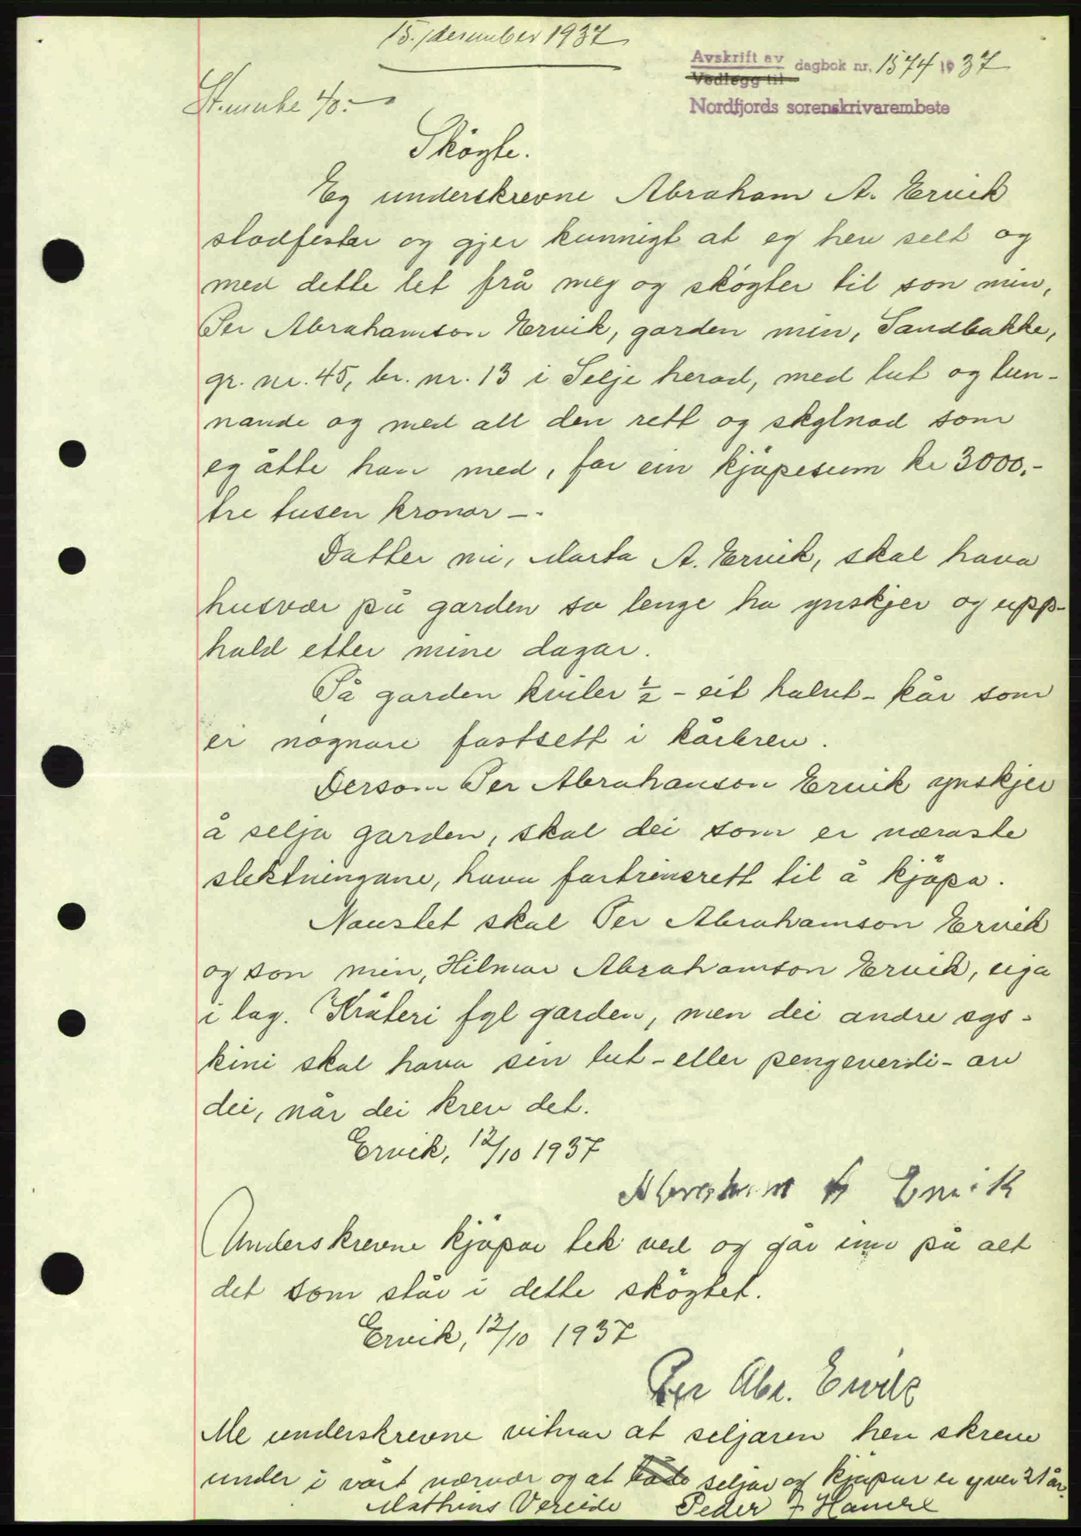 15. desember 1937
Avskrift av dagbok nr. 1574 1937
Vedlegg til
Nordfjords sorenskrivarembete
Skøyte.
Eg underskrevne Abraham A. Ervik
stadfester og gjer kunnigt at eg hev selt og
med dette let frå meg og skøyter til son min,
Per Abrahamson Ervik, garden min, Sandbakke,
gr. nr. 45, br. nr. 13 i Selje herad, med lut og lun-
nande og med all den rett og skylnad som
eg åtte han med, for ein kjøpesum kr 3000,-
tre tusen kronor -.
Datter mi, Marta A. Ervik, skal hava
husvær på garden so lenge ho ynskjer og upp-
hald etter mine dagar.
På garden kviler ½ - eit halvt - kår som
er nøgnare fastsett i kårbrev.
Dersom Per Abrahamson Ervik ynskjer
å selja garden, skal dei som er næraste
slektningane, hava fortrinsrett til å kjøpa.
Naustet skal Per Abrahamson Ervik
og son min, Hilmar Abrahamson Ervik, eiga
i lag. Krøteri fyl garden, men dei andre sys-
kini skal hava sin lut - eller pengeverdi - av
dei, når dei krev det.
Ervik, 12/10 1937
Abraham A Ervik
Underskrevne kjøpar tek ved og går inn på alt
det som står i dette skøytet.
Ervik, 12/10 1937
Per Abr. Ervik
Me underskrevne vitnar at seljaren hev skreve
under i vårt nærvær og at både seljar og kjøpar er yver 21 år.
Mathias Vereide Peder J Hamre